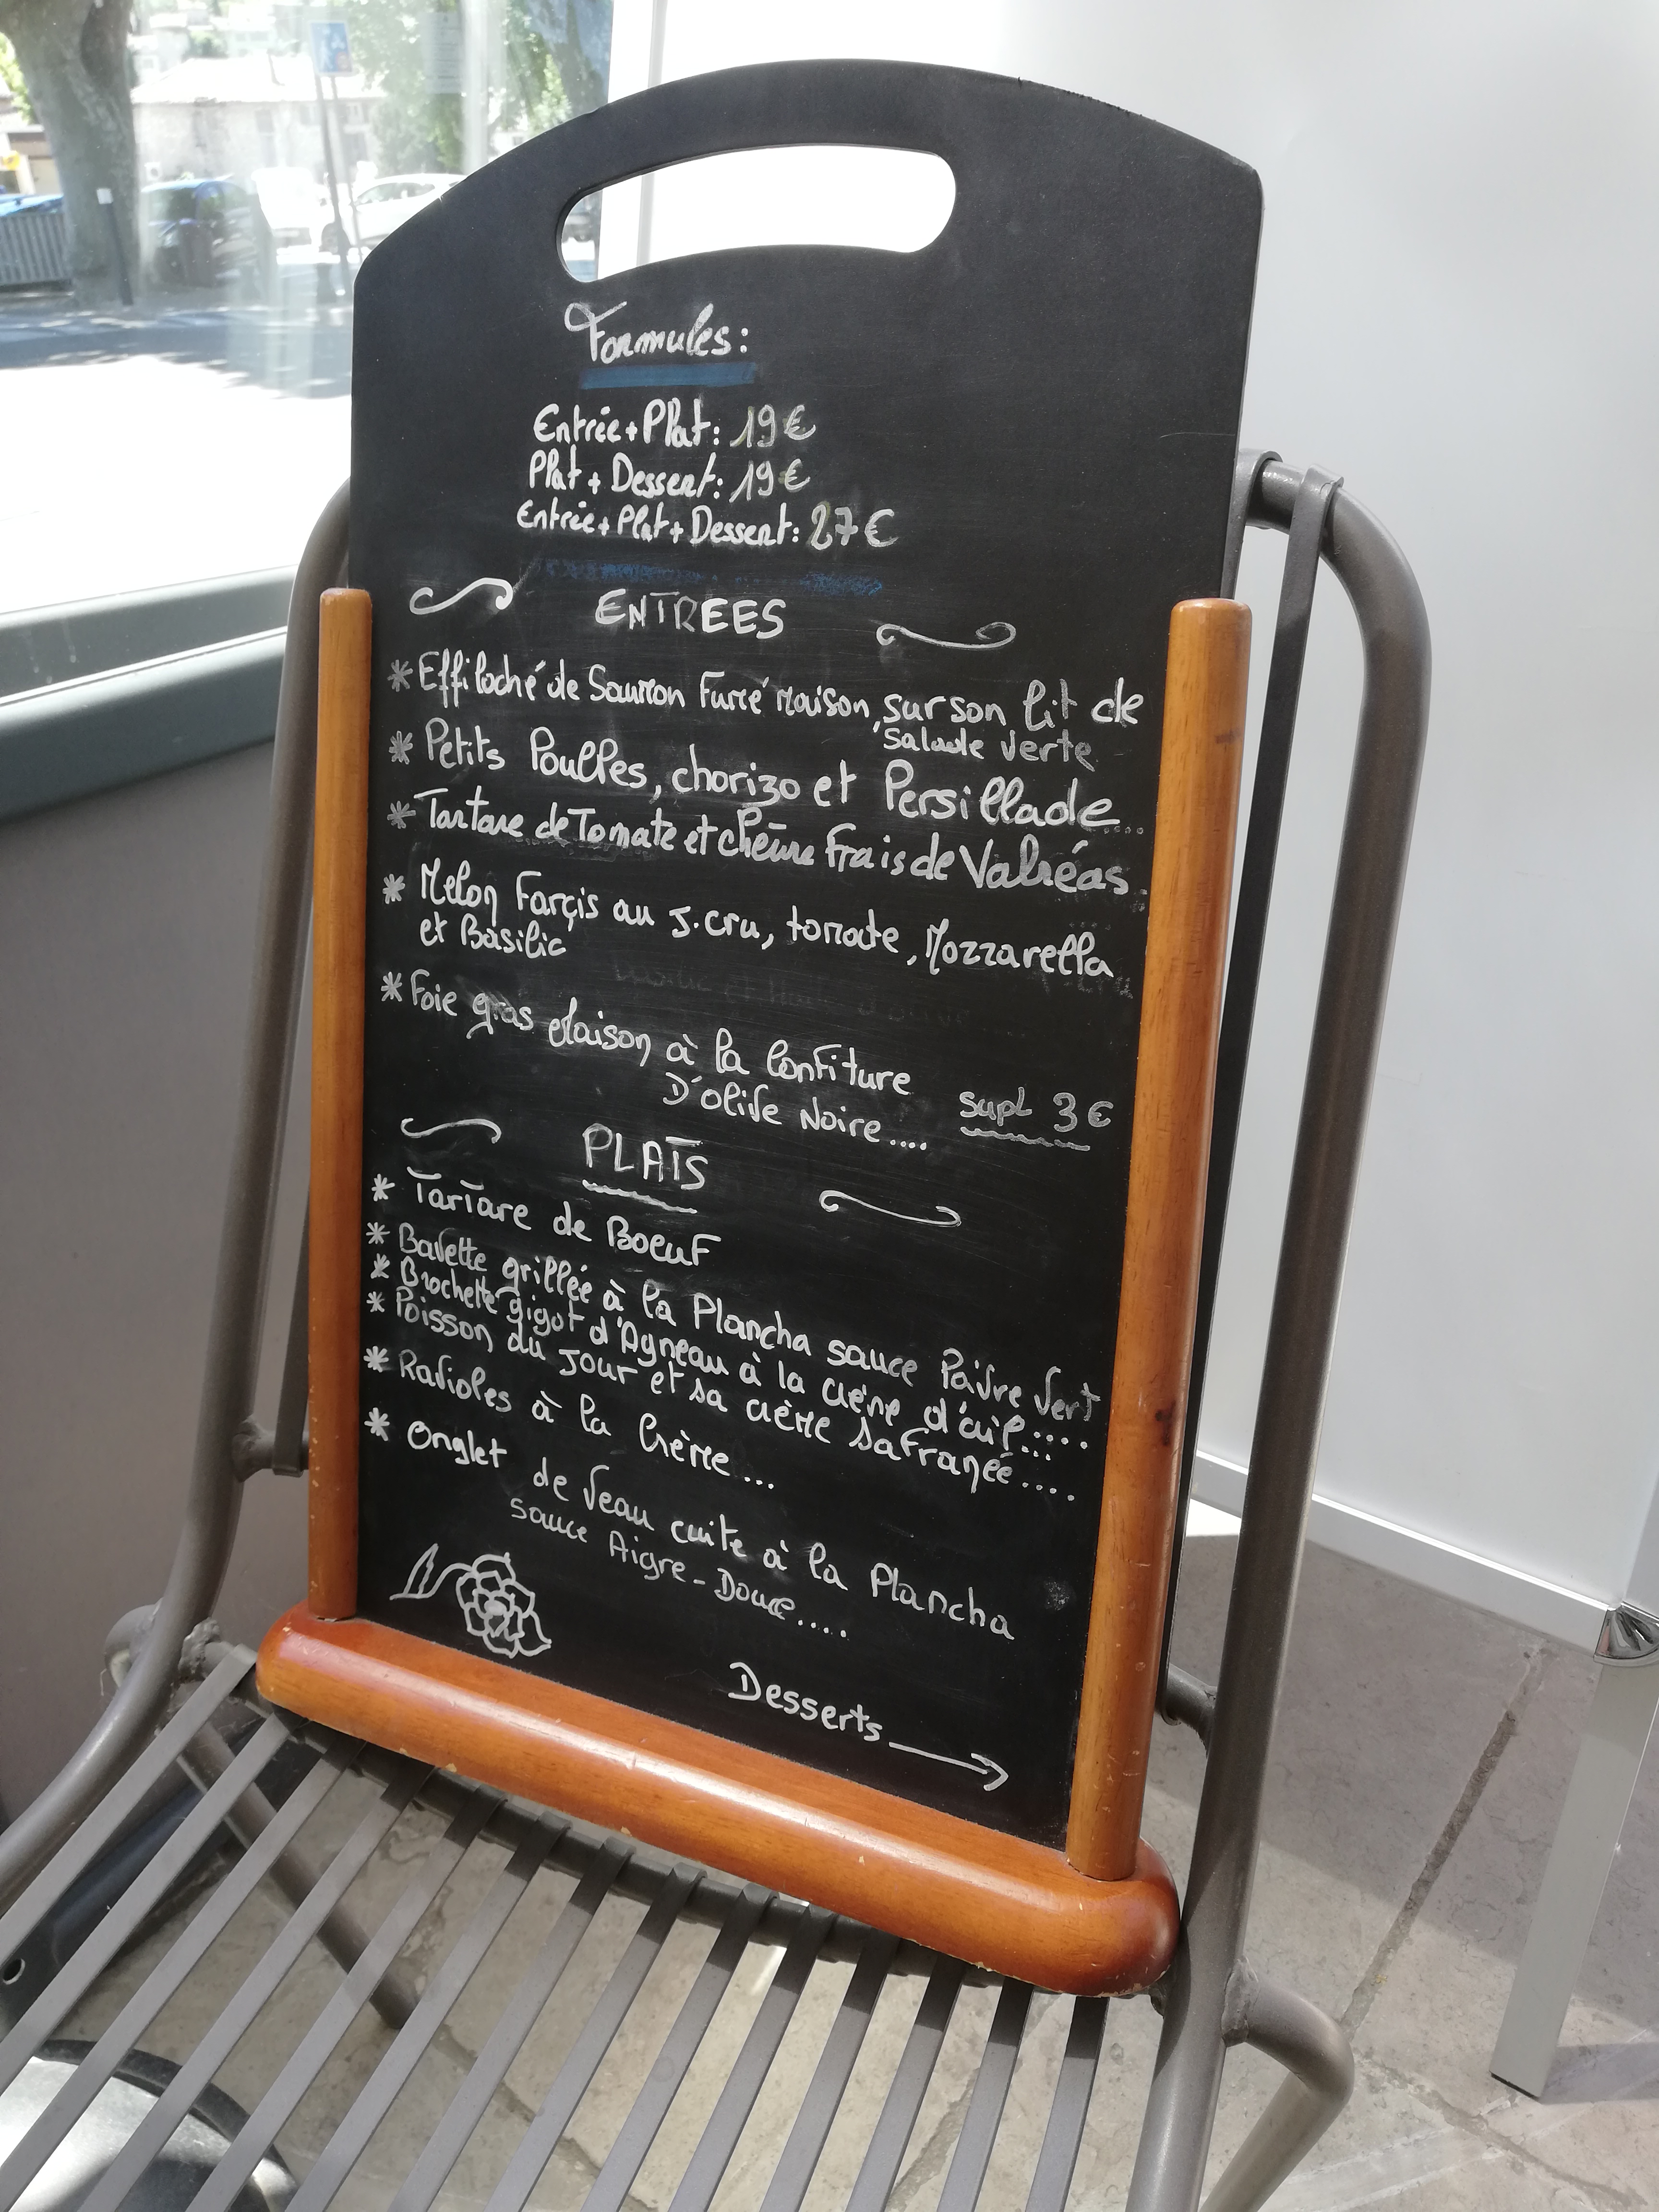 Formules:
Entrée + Plat: 19€
Plat + Dessert: 19€
Entrée + Plat + Dessert: 27€
ENTREES
* Effiloché de Saumon Fumé maison, sur son lit de
salade verte
* Petits Poulpes, chorizo et Persillade....
* Tartare de Tomate et chèvre Frais de Valréas.
* Melon Farçis au J.cru, tomate, Mozzarella
et Basilic
* Foie gras Maison à la Confiture
D'olive Noire....
supl 3€
PLATS
* Tartare de Boeuf
* Bavette grillée à la Plancha sauce Poivre Vert
* Brochette gigot d'Agneau à la crème d'ail....
* Poisson du Jour et sa crème safranée....
* Ravioles à la Crème...
* Onglet de Veau cuite à la Plancha
sauce Aigre-Douce....
Desserts